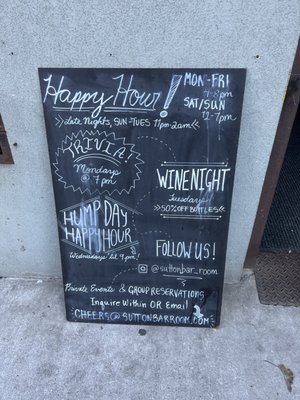 Happy Hour! MON-FRI
4-8pm
SAT/SUN
12-7pm
>>Late Nights, SUN-TUES 11pm-2am>>
TRIVIA!
Mondays
@ 7pm
WINE NIGHT
Tuesdays
>50% OFF BOTTLES<
HUMP DAY
HAPPY HOUR
Wednesdays til 9pm!
FOLLOW US!
@suttonbar_room
Private Events & GROUP RESERVATIONS
Inquire Within OR Email
CHEERS@SUTTONBARROOM.COM